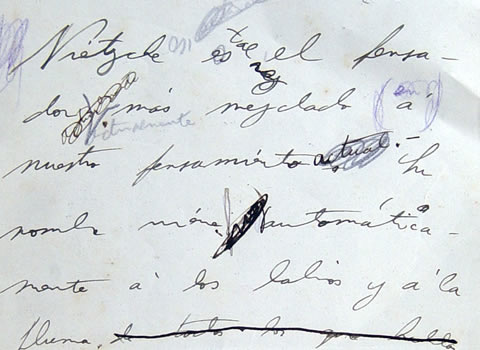 Niétzche es tal vez el pensa-
dor más mezclado á (en)
actualmente
nuestro pensamiénto actual. Su
nombre viéne automática-
mente á los labios y á la
pluma, de todos los que hablan